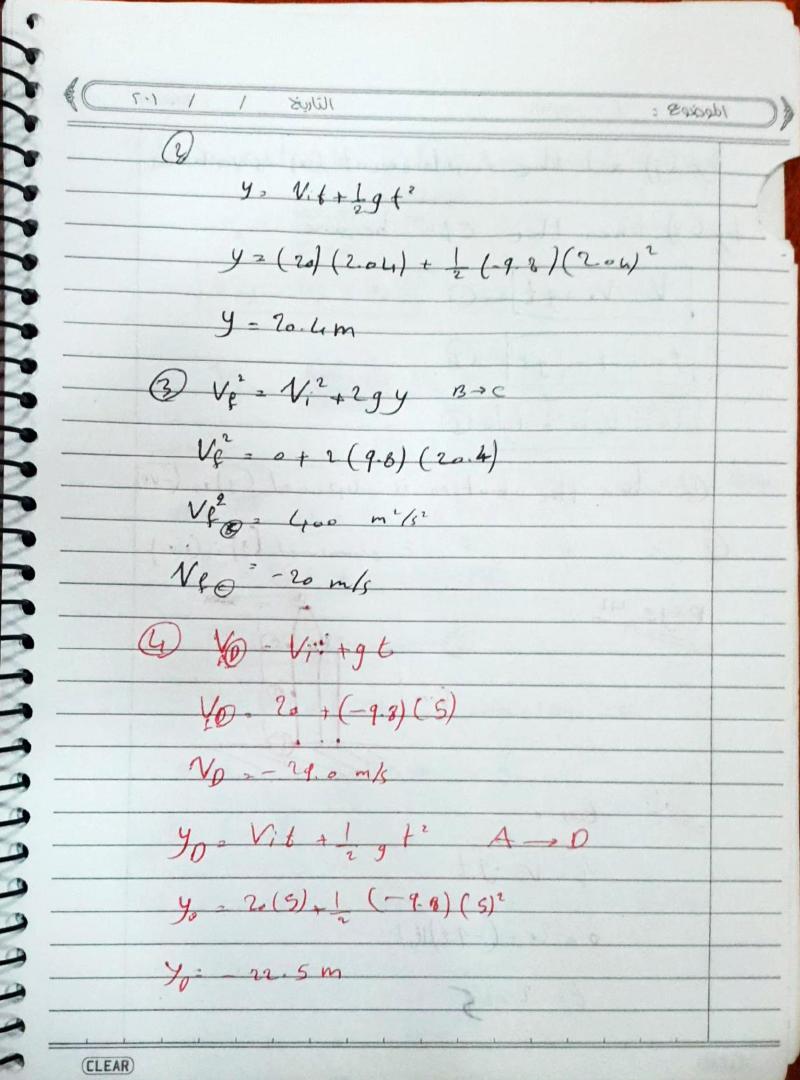 الموضوع : التاريخ / / ٢٠١
②
y = Vit + ½ g t²
y = (20) (2.04) + ½ (-9.8) (2.04)²
y = 20.4 m
③ Vf² = Vi² + 2 g y B → C
Vf² = 0 + 2 (9.8) (20.4)
Vf² Ⓒ = 400 m²/s²
Vf Ⓒ = -20 m/s
④ VD = Vi + g t
VD = 20 + (-9.8) (5)
VD = -29.0 m/s
yD = Vit + ½ g t² A → D
yD = 20 (5) + ½ (-9.8) (5)²
yD = -22.5 m
CLEAR